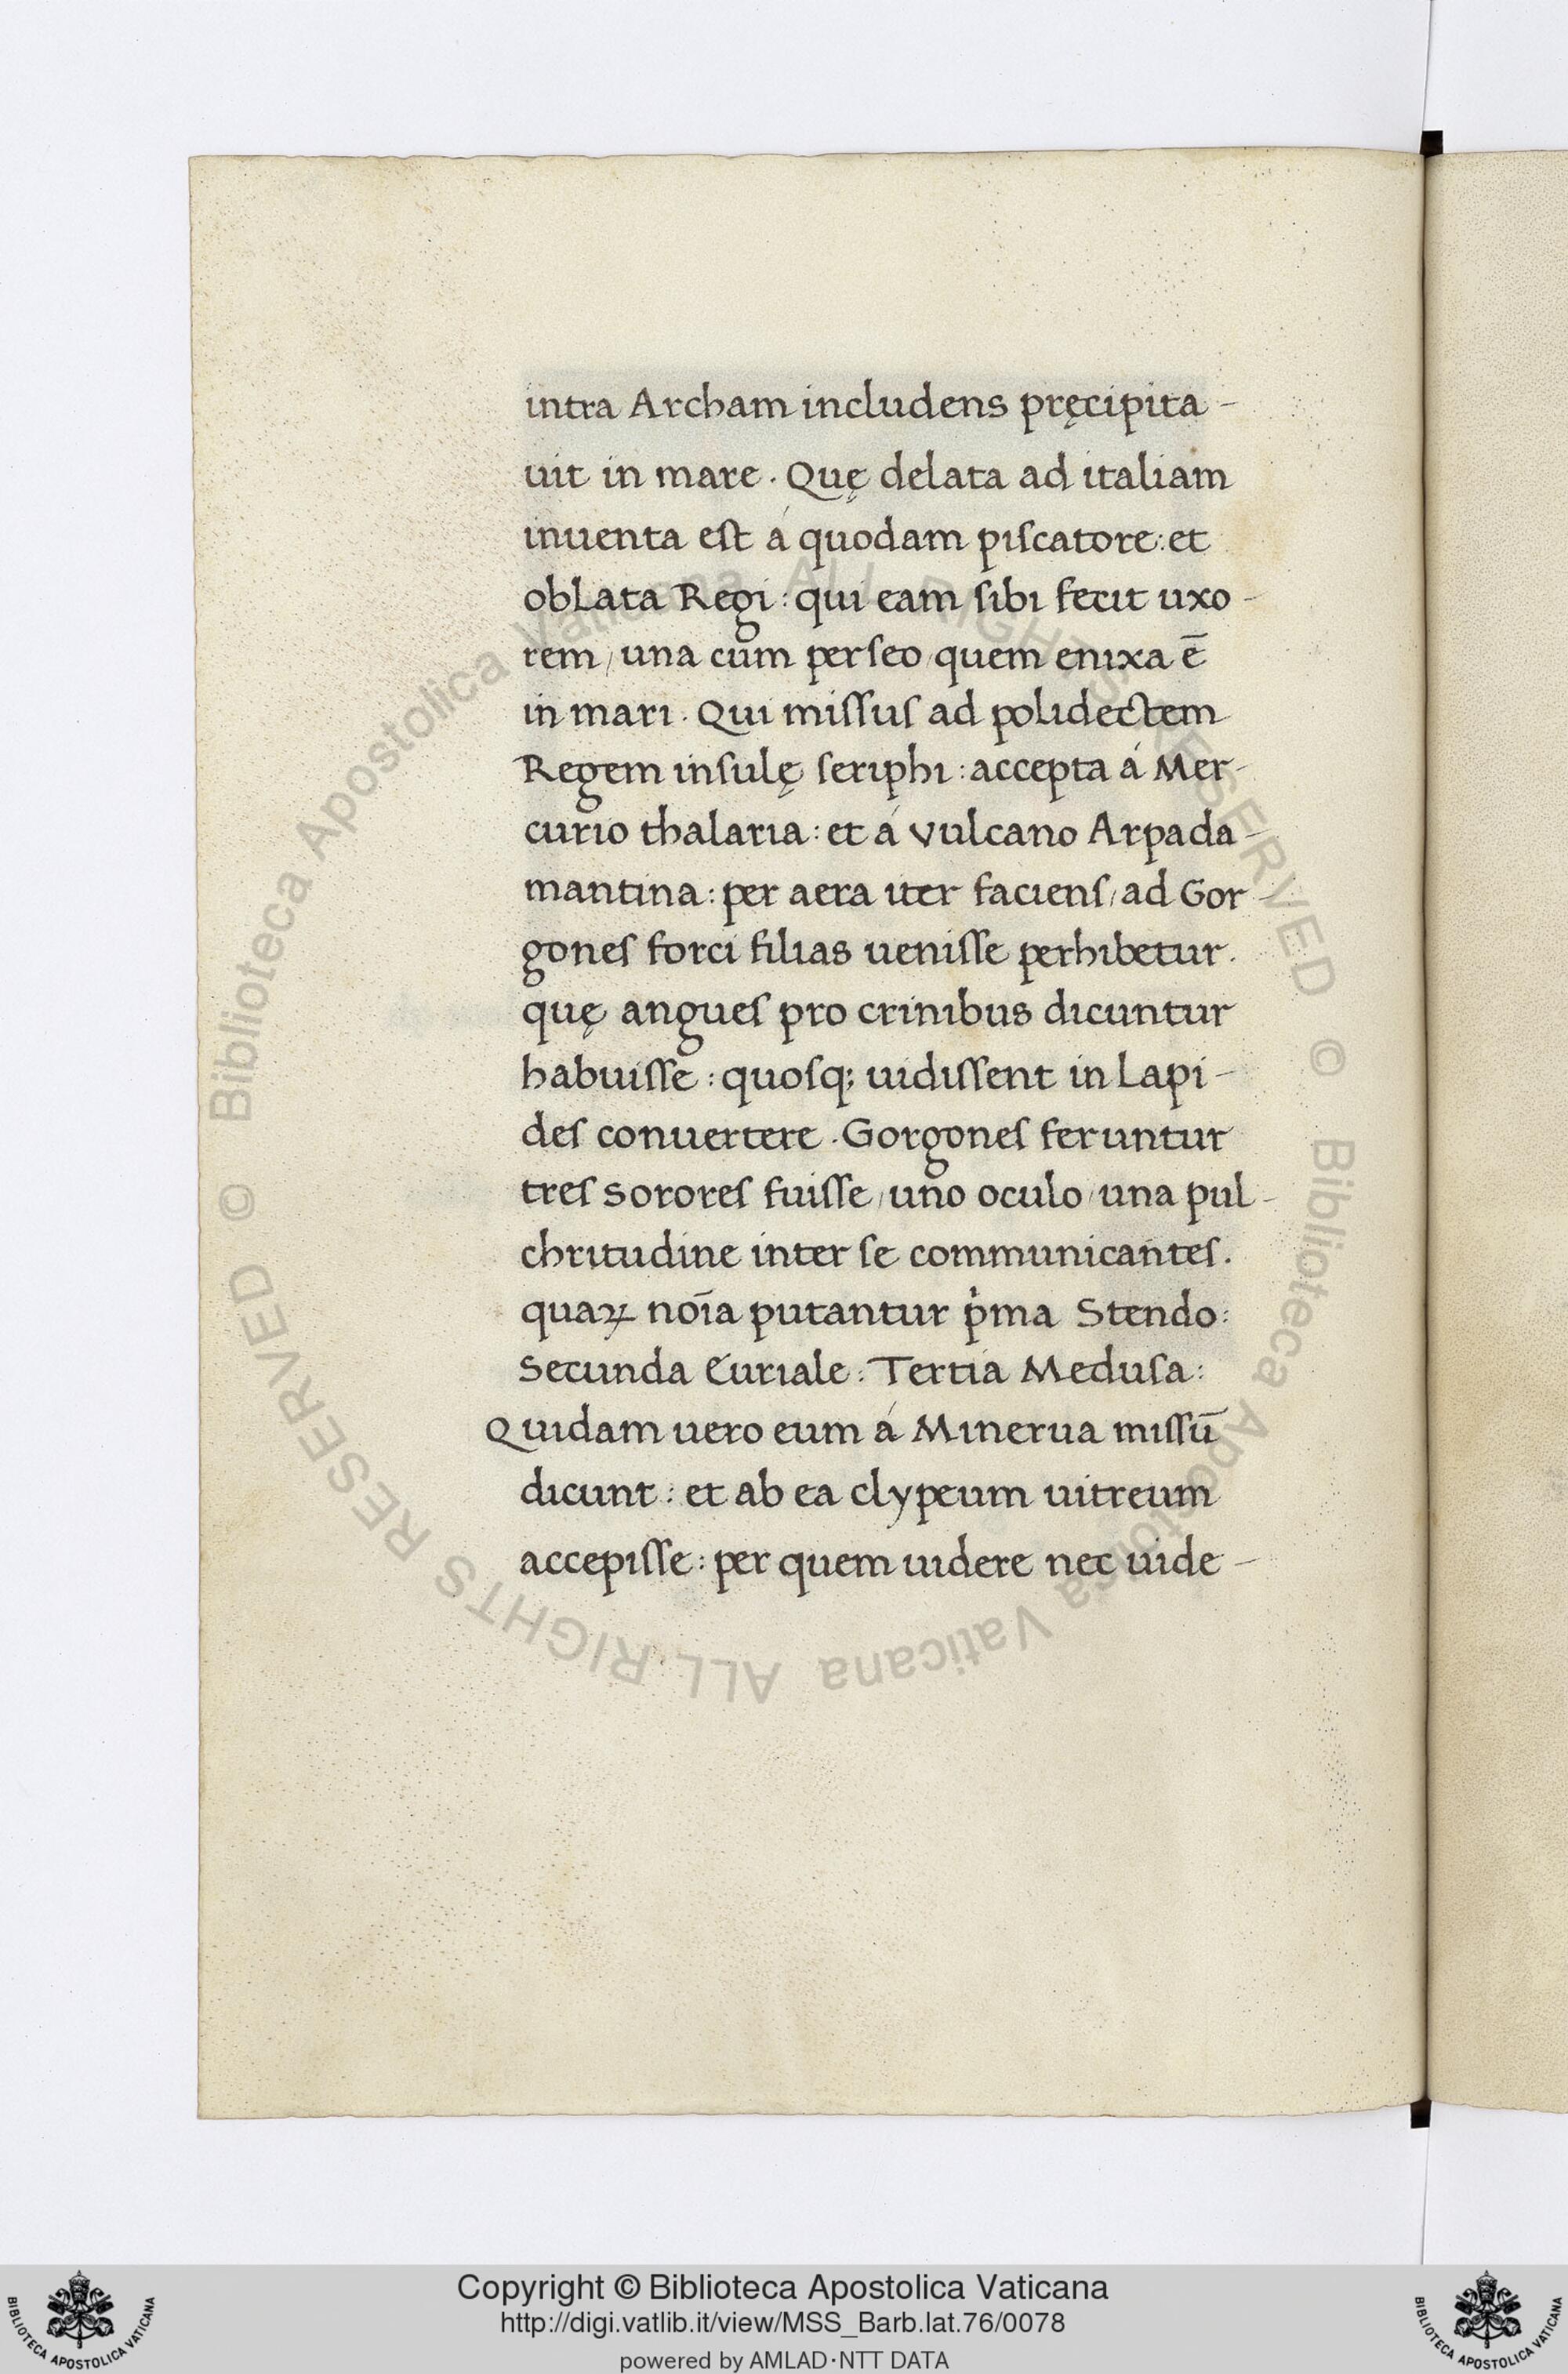 intra Archam includens pręcipita-
uit in mare. Quę delata ad italiam
inuenta eſt á quodam piſcatore: et
obLata Regi: qui eam ſibi fecit uxo-
rem, una cum perſeo, quem enixa ē
in mari. Qui miſſuſ ad polidectem
Regem inſulę ſeriphi: accepta á Mer-
curio thalaria: et á vulcano Arpada-
mantina: per aera iter facienſ, ad Gor-
goneſ forci filias ueniſſe perhibetur.
quę angueſ pro crinibus dicuntur
habuiſſe: quoſq; uidiſſent in Lapi-
deſ conuertere. Gorgoneſ feruntur
treſ sororeſ fuiſſe, uno oculo, una pul-
chritudine inter ſe communicanteſ.
quaꝝ noīa putantur p̍ma Stendo:
Secunda Euriale: Tertia Meduſa:
Quidam uero eum á Minerua miſſū
dicunt: et ab ea clypeum uitreum
accepiſſe: per quem uidere nec uide-
© Biblioteca Apostolica Vaticana ALL RIGHTS RESERVED © Biblioteca Apostolica Vaticana ALL RIGHTS RESERVED
Copyright © Biblioteca Apostolica Vaticana
http://digi.vatlib.it/view/MSS_Barb.lat.76/0078
powered by AMLAD·NTT DATA
BIBLIOTECA APOSTOLICA VATICANA
BIBLIOTECA APOSTOLICA VATICANA